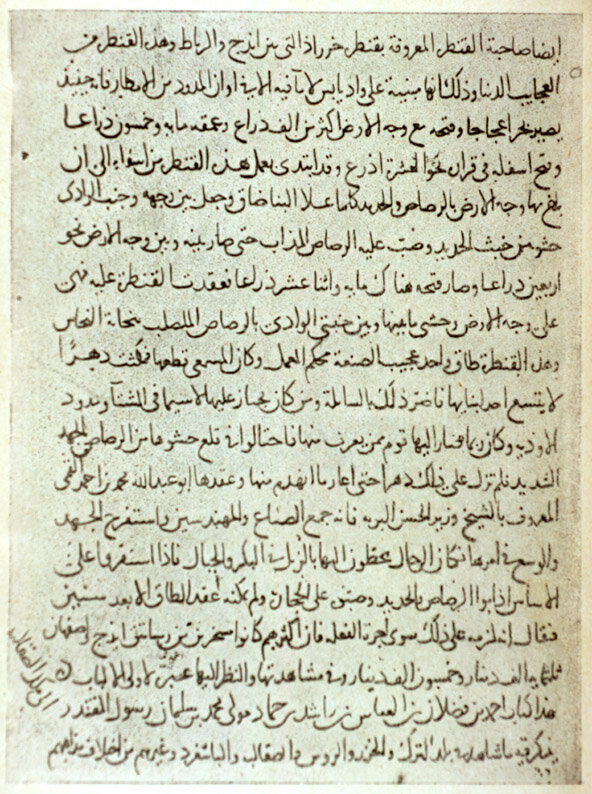 ايضا صاحبة القنطرة المعروفة بقنطرة خرزاذ التى بين ايذج والرباط وهذه القنطرة من
عجايب الدنيا وذلك انها مبنية على واد يابس لا مآ فيه الا فى اوان المدود من الامطار فانه حينئذ
يصير بحرا عجاجا وفتحه مع وجه الارض اكثر من الف ذراع وعمقه مايه وخمسون ذراعا
وفتح اسفله فى قراره نحو العشرة اذرع وقد ابتدئ بعمل هذه القنطرة من اسفلها الى ان
بلغ بها وجه الارض بالرصاص والحديد كلما علا البنا ضاق وجعل بين وجهه وجنب الوادى
حشو من خبث الحديد وصب عليه الرصاص المذاب حتى صار بينه وبين وجه الارض نحو
اربعين ذراعا وصار فتحه هناك مايه واثنا عشر ذراعا فعقدت القنطرة عليه فهى
على وجه الارض وحشى ما بينها وبين جنبتى الوادى بالرصاص المصلب بنحاتة النحاس
وهذه القنطرة طاق واحد عجيب الصنعة محكم العمل وكان المسمعى قطعها فمكثت دهرًا
لا يتسع احد لبنايها فاضر ذلك بالسابلة ومن كان يجتاز عليها لا سيما فى الشتآ ومدود
الاوديه وكان ربما صار اليها قوم ممن يقرب منها فاحتالوا فى قلع حشوها من الرصاص بالجهد
الشديد فلم تزل على ذلك دهرا حتى اعاد ما انهدم منها وعقدها ابو عبد الله محمد بن احمد القمى
المعروف بالشيخ وزير الحسن البويه فانه جمع الصناع والمهندسين واستفرغ الجهد
والوسع فى امرها فكان الرجال يحطون اليها بالزبل فى البكر والحبال فاذا استقروا على
الاساس اذابوا الرصاص والحديد وصبوه على الحجارة ولم يمكنه عقد الطاق الا بعد سنتين
فيقال انه لزمه على ذلك سوى اجرة الفعلة فان اكثرهم كانوا مسخرين من رساتيق ايذج واصفهان
ثلثمايه الف دينار وخمسون الف دينار وفى مشاهدتها والنظر اليها عبرة لاولى الالباب
هذا كتاب احمد بن فضلان بن العباس بن راشد بن حماد مولى محمد بن سلمان رسول المقتدر
الى ملك الصقالبه
يذكر فيه ما شاهد فى بلد الترك والخزر والروس والصقالبه والباشغرد وغيرهم من اختلاف مذاهبهم